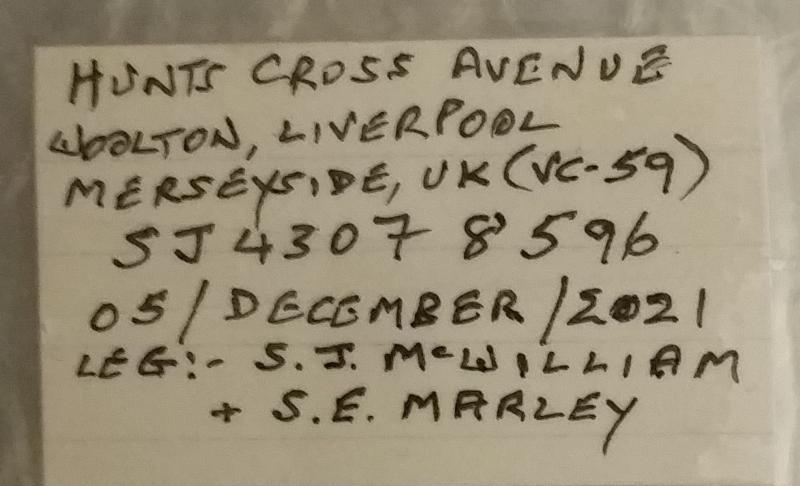 HUNTS CROSS AVENUE
WOOLTON, LIVERPOOL
MERSEYSIDE, UK (VC-59)
SJ 4307 8596
05/DECEMBER/2021
LEG:- S.J. McWILLIAM
+ S.E. MARLEY